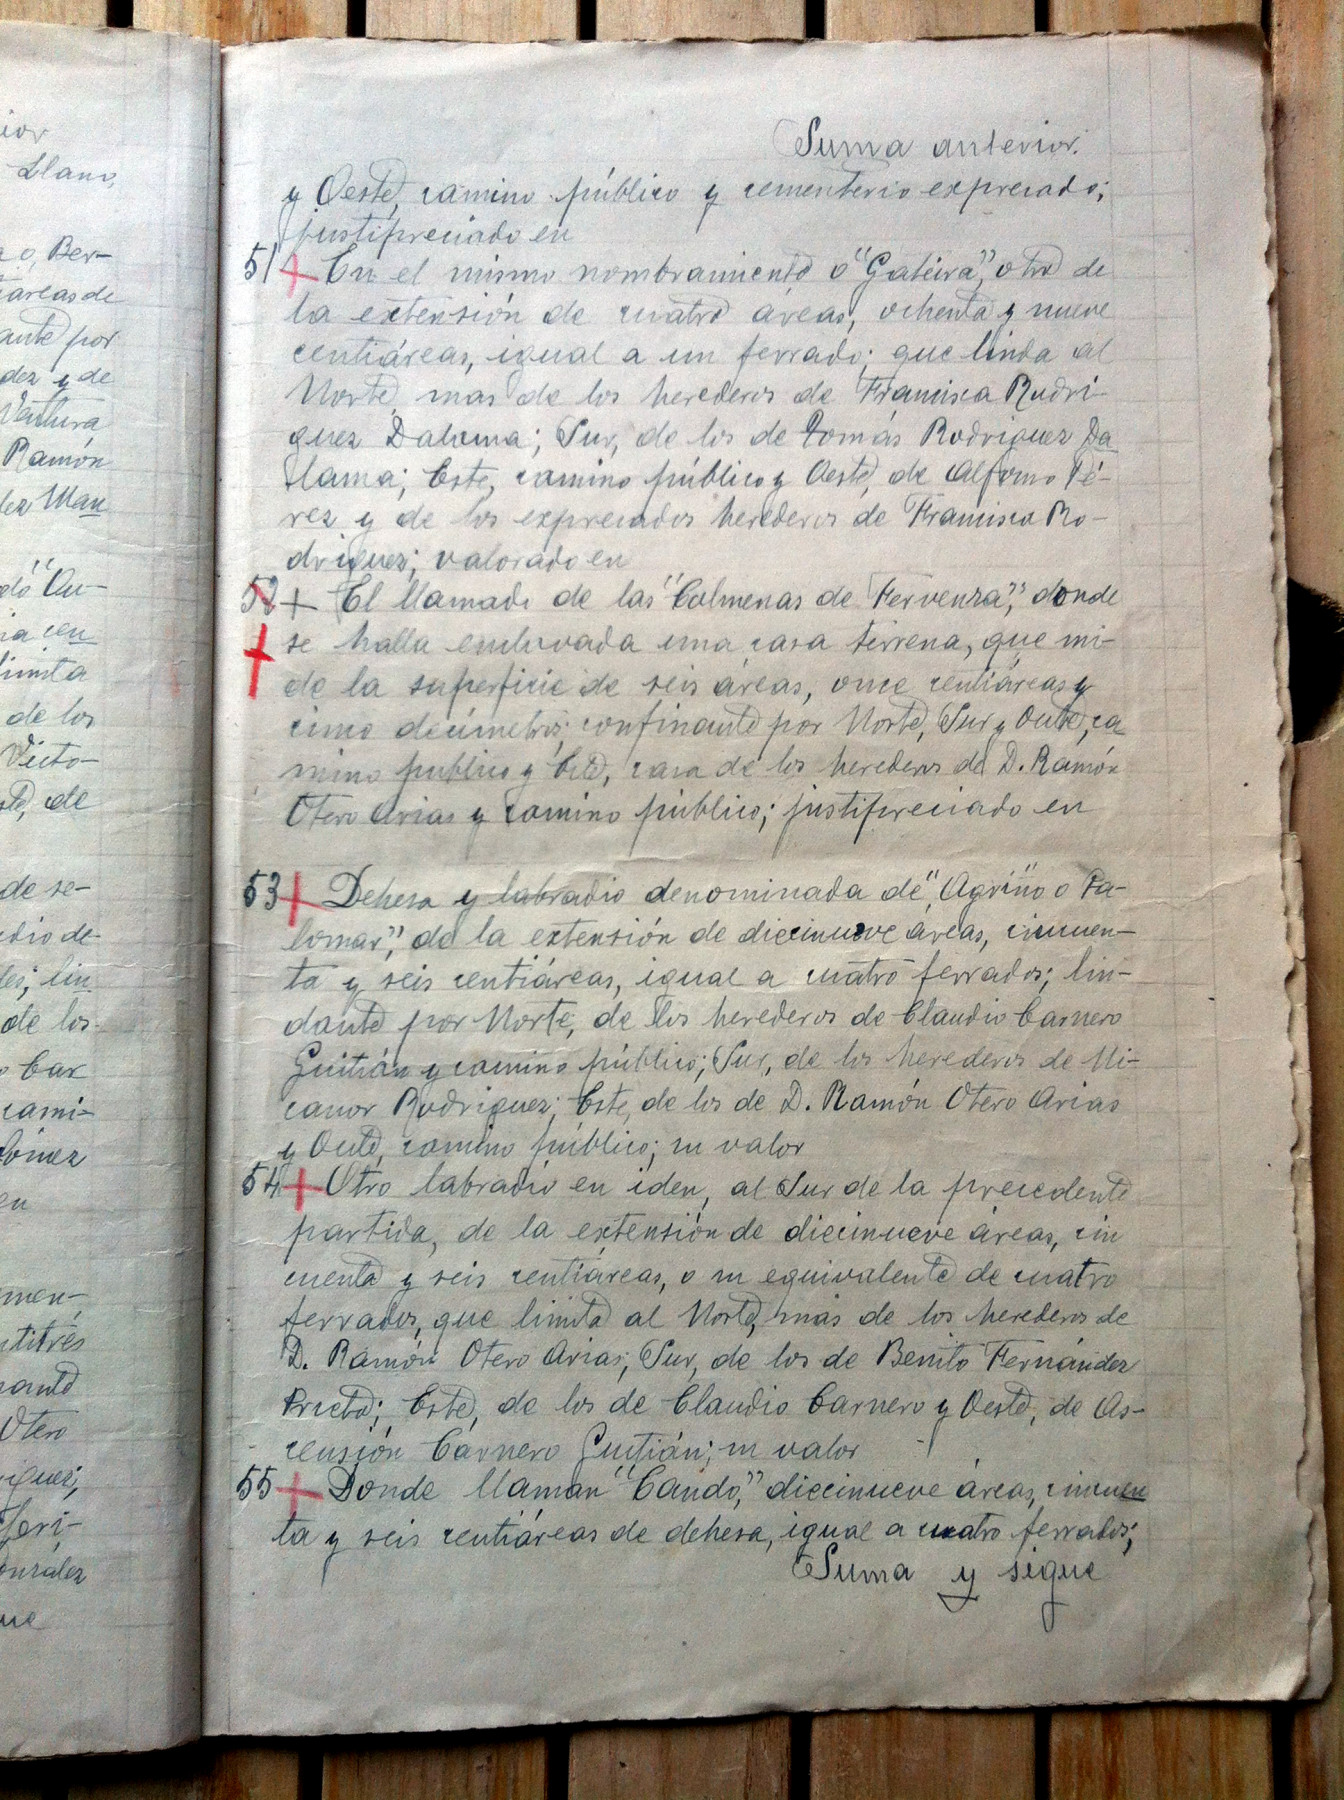 ior
Llano,
o, Ber-
áreas de
ante por
dez y de
Ventura
Ramón
dez Man
do "Cu-
ia cen
limita
de los
Victo-
de
de se-
dio de-
lin
de los
Car
cami-
ómez
en
men-
ntitres
Otero
iguez;
feri-
onzález
Suma anterior.
y Oeste, camino público y cementerio expresado;
justipreciado en
51 + En el mismo nombramiento ó "Gateira", otro de
la extensión de cuatro áreas, ochenta y nueve
centiáreas, igual a un ferrado; que linda al
Norte, mas de los herederos de Francisca Rodri-
guez Dalama; Sur, de los de Tomás Rodriguez Da
llama; Este, camino público y Oeste, de Alfonso Pé-
rez y de los expresados herederos de Francisca Ro-
driguez; valorado en
52 + El llamado de las "Colmenas de Fervenza", donde
se halla enclavada una casa terrena, que mi-
de la superficie de seis áreas, once centiáreas y
cinco decímetros; confinante por Norte, Sur y Oeste, ca
mino publico y Este, casa de los herederos de D. Ramón
Otero Arias y camino público; justipreciado en
53 + Dehesa y labradio denominada de "Agriño o Pa-
lomar", de la extensión de diecinueve áreas, cincuen-
ta y seis centiáreas, igual a cuatro ferrados; lin-
dante por Norte, de los herederos de Claudio Carnero
Guitián y camino público; Sur, de los herederos de Ni-
canor Rodriguez; Este, de los de D. Ramón Otero Arias
y Oeste, camino público; su valor
54 + Otro labradio en iden, al Sur de la precedente
partida, de la extensión de diecinueve áreas, cin
cuenta y seis centiáreas, o su equivalente de cuatro
ferrados, que limita al Norte, más de los herederos de
D. Ramón Otero Arias; Sur, de los de Benito Fernández
Prieto; Este, de los de Claudio Carnero y Oeste, de As-
censión Carnero Guitián; su valor
55 + Donde llaman "Cando," diecinueve áreas, cincuen
ta y seis centiáreas de dehesa, igual a cuatro ferrados;
Suma y sigue